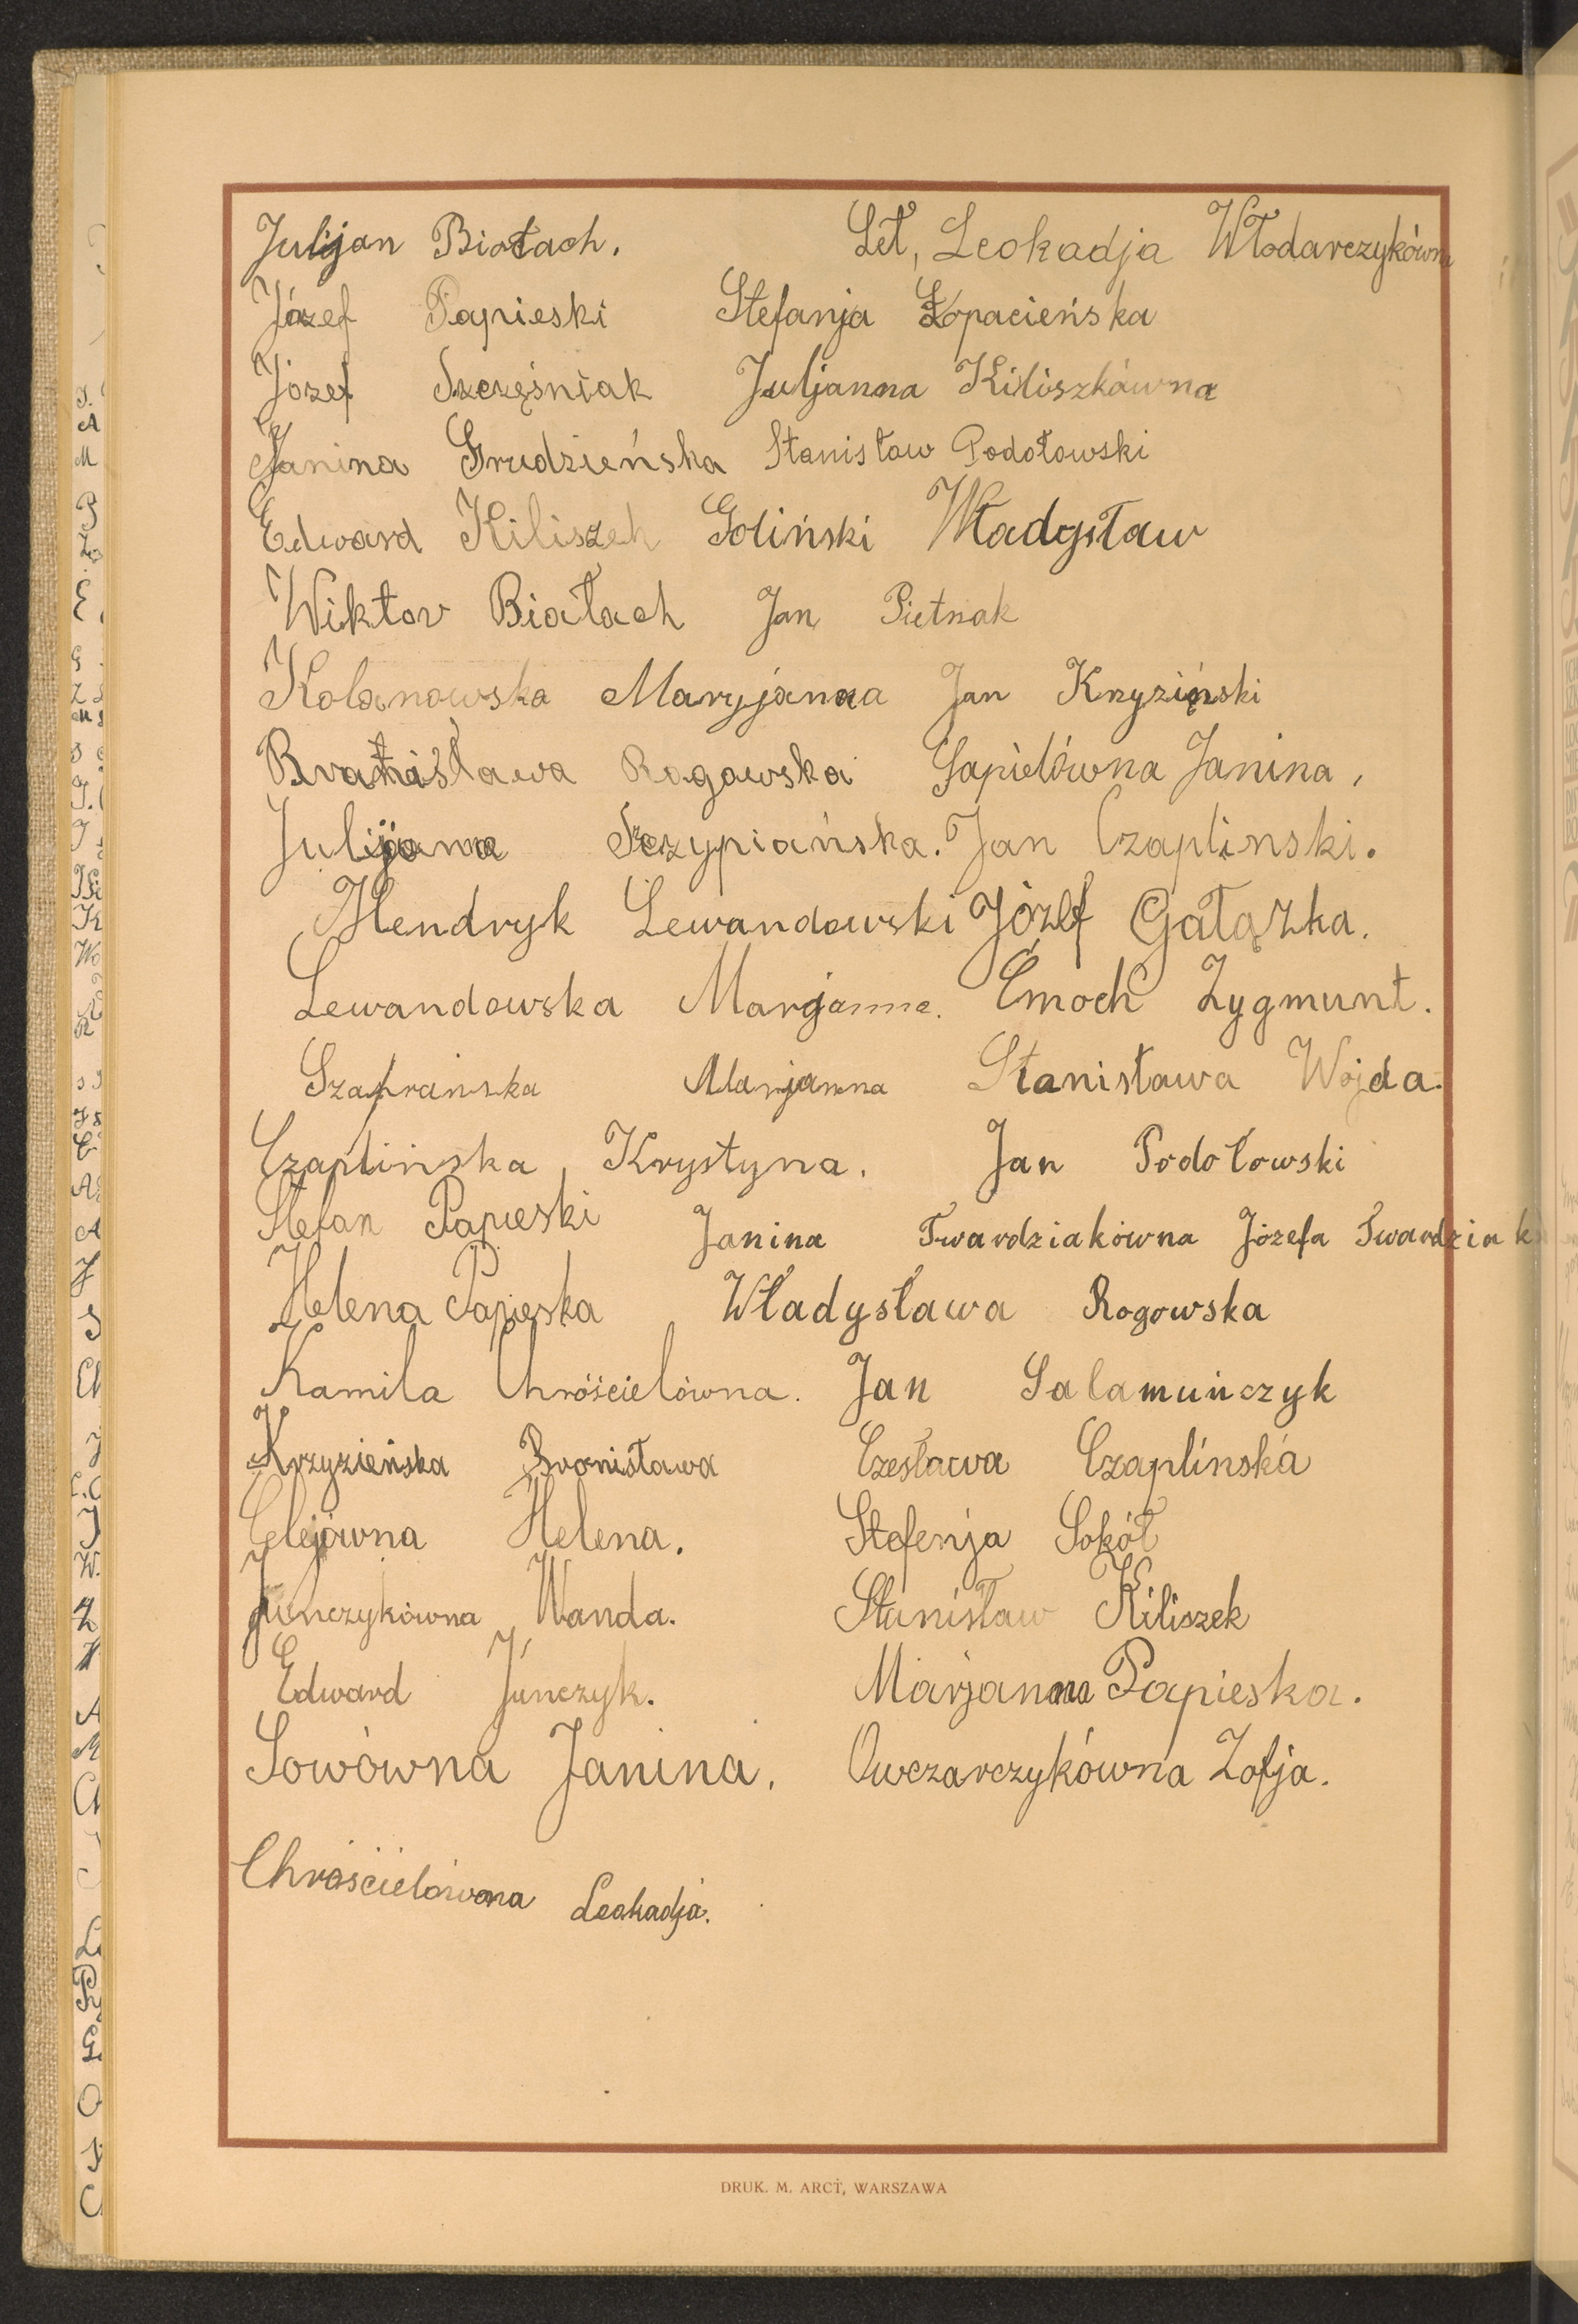 Julijan Białach. Let, Leokadja Włodarczykówna
Józef Papieski Stefanja Łopacieńska
Józef Szcześniak Juljanna Kiliszkówna
Janina Grudzieńska Stanisław Podołowski
Edward Kiliszek Goliński Władysław
Wiktor Białach Jan Pietrzak
Kolanowska Maryjanna Jan Krzyziński
Bronisława Rogowska Gapielówna Janina,
Julijana Szczypiańska. Jan Czaplinski.
Hendryk Lewandowski Józef Gałązka.
Lewandowska Marjanna. Emoch Zygmunt.
Szafrańska Marjanna Stanisława Wojda.
Czaplińska, Krystyna. Jan Podołowski
Stefan Papieski Janina Twardziakówna Józefa Twardziak
Helena Papieska Władysława Rogowska
Kamila Chróścielówna. Jan Salamończyk
Krzyzieńska Bronisława Czesława Czaplínska
Celejówna Helena. Stefenja Sokół
Junczykówna Wanda. Stanisław Kiliszek
Edward Junczyk. Marjanna Papieska.
Sowówna Janina. Owczarczykówna Zofja.
Chrościelówna Leokadja.
DRUK. M. ARCT, WARSZAWA